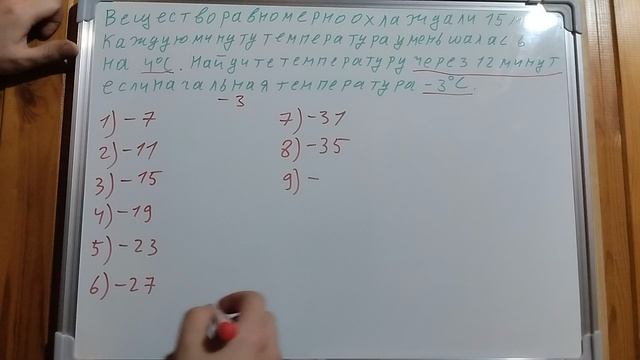 Вещество равномерно охлаждали 15
Каждую минуту температура уменьшалась
на 4°C. Найдите температуру через 12 минут
если начальная температура -3°C.
-3
1) -7
2) -11
3) -15
4) -19
5) -23
6) -27
7) -31
8) -35
9) -